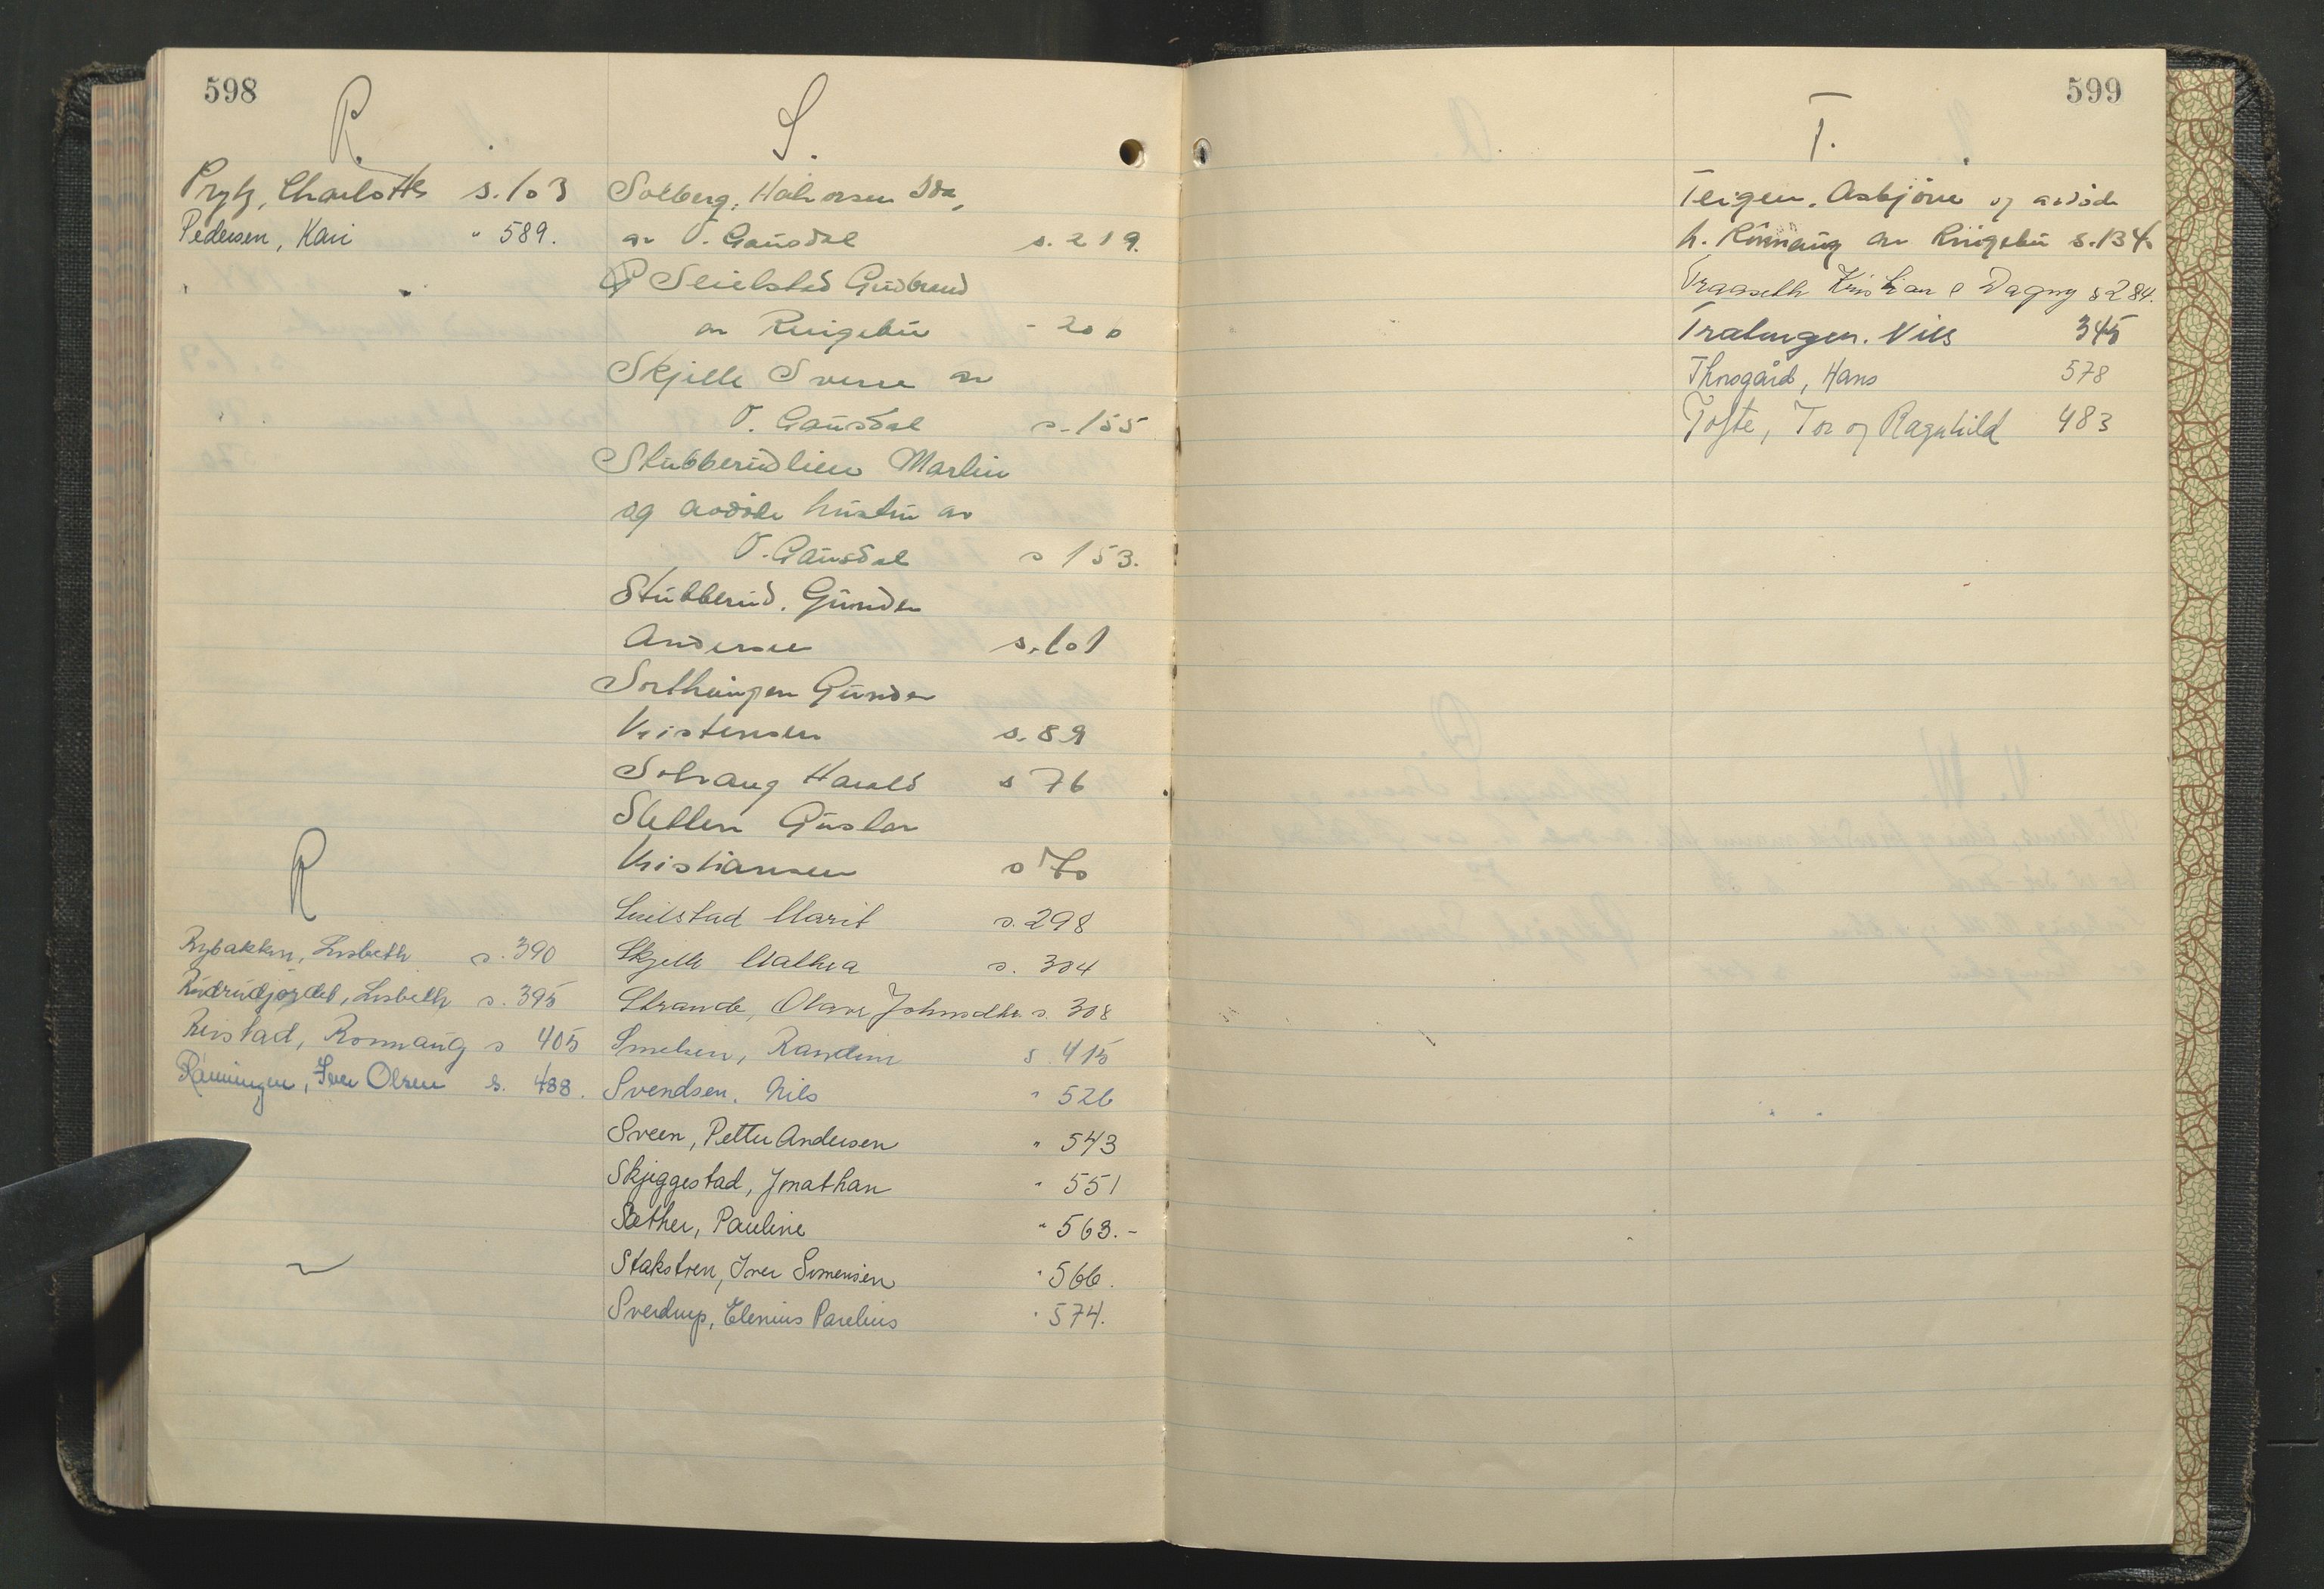 598
R.
Prytz, Charlotte s. 103
Pedersen, Kari " 589.
R
Rybakken, Lisbeth s. 390
Rudrudjordet, Lisbeth s. 395
Ristad, Ronnaug s 405
Rønningen, Iver Olsen s. 488.
S.
Solberg, Halvorsen Ida,
av Ø. Gausdal s. 219.
Seielstad Gudbrand
av Ringebu - 206
Skjelle Sverre av
Ø. Gausdal s. 155
Stubberudlien Martin
og avdøde hustru av
Ø. Gausdal s 153.
Stubberud, Gunder
Andersen s. 101
Sorthaugen Gunder
Kristensen s. 89
Solvang Harald s 76
Sletten Gustav
Kristiansen s 70
Seielstad Marit s. 298
Skjelle Mathea s. 304
Strande, Olava Johnsdtr. s. 308
Smehen, Randine s. 415
Svendsen, Nils " 526
Sveen, Petter Andersen " 543
Skjeggestad, Jonathan " 551
Sæther, Pauline " 563.-
Stakstren, Iver Simensen " 566.
Sverdrup, Elenius Parelius " 574.
599
T.
Teigen, Asbjørn og avdøde
h. Rønnaug av Ringebu s. 134
Traaseth Kristian & Dagny s 284.
Tratengen. Nils 345
Thorsgård, Hans 578
Tofte, Tor og Ragnhild 483